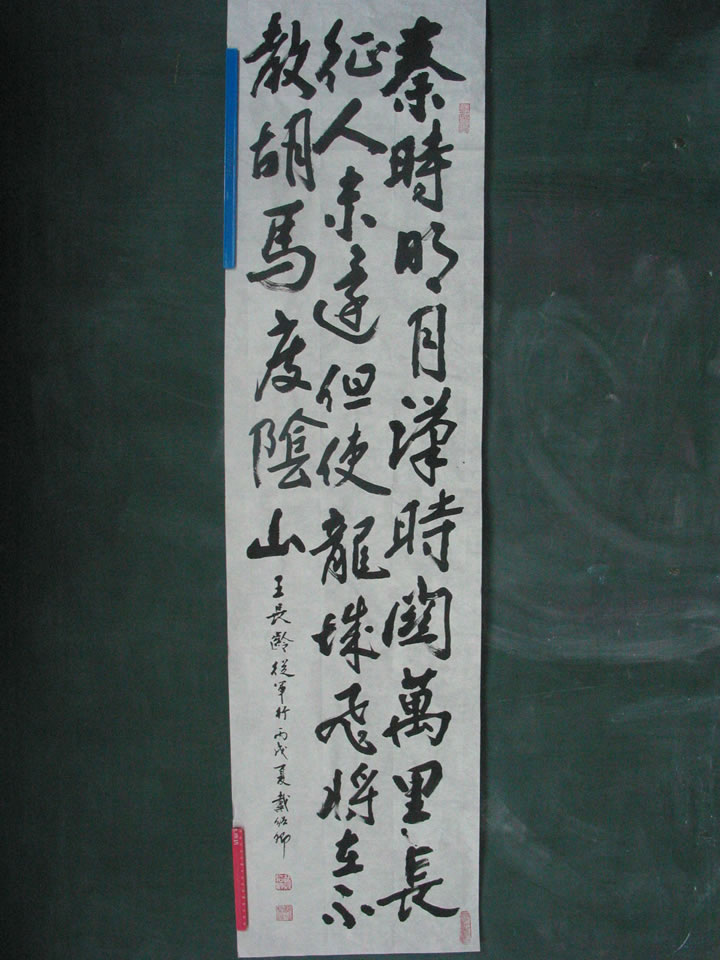 秦時明月漢時關萬里長
征人未還但使龍城飛將在不
教胡馬度陰山
王長齡從軍行丙戌夏戴